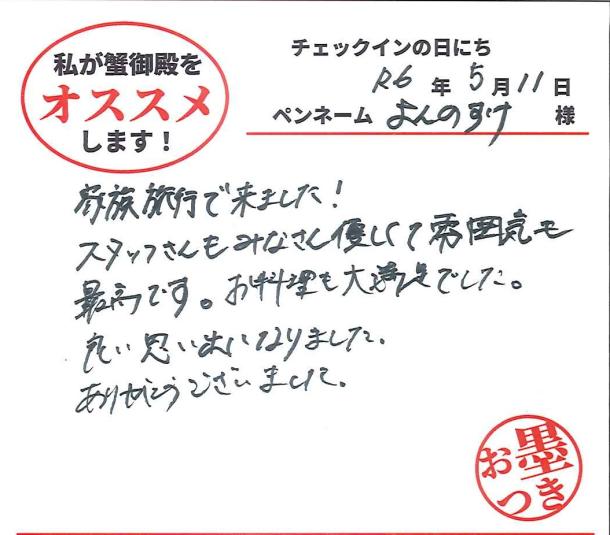 私が蟹御殿を
オススメ
します！
チェックインの日にち
R6年5月11日
ペンネーム よんのすけ 様
家族旅行で来ました！
スタッフさんもみなさん優しくて雰囲気も
最高です。お料理も大満足でした。
良い思い出になりました。
ありがとうございました。
お墨
つき